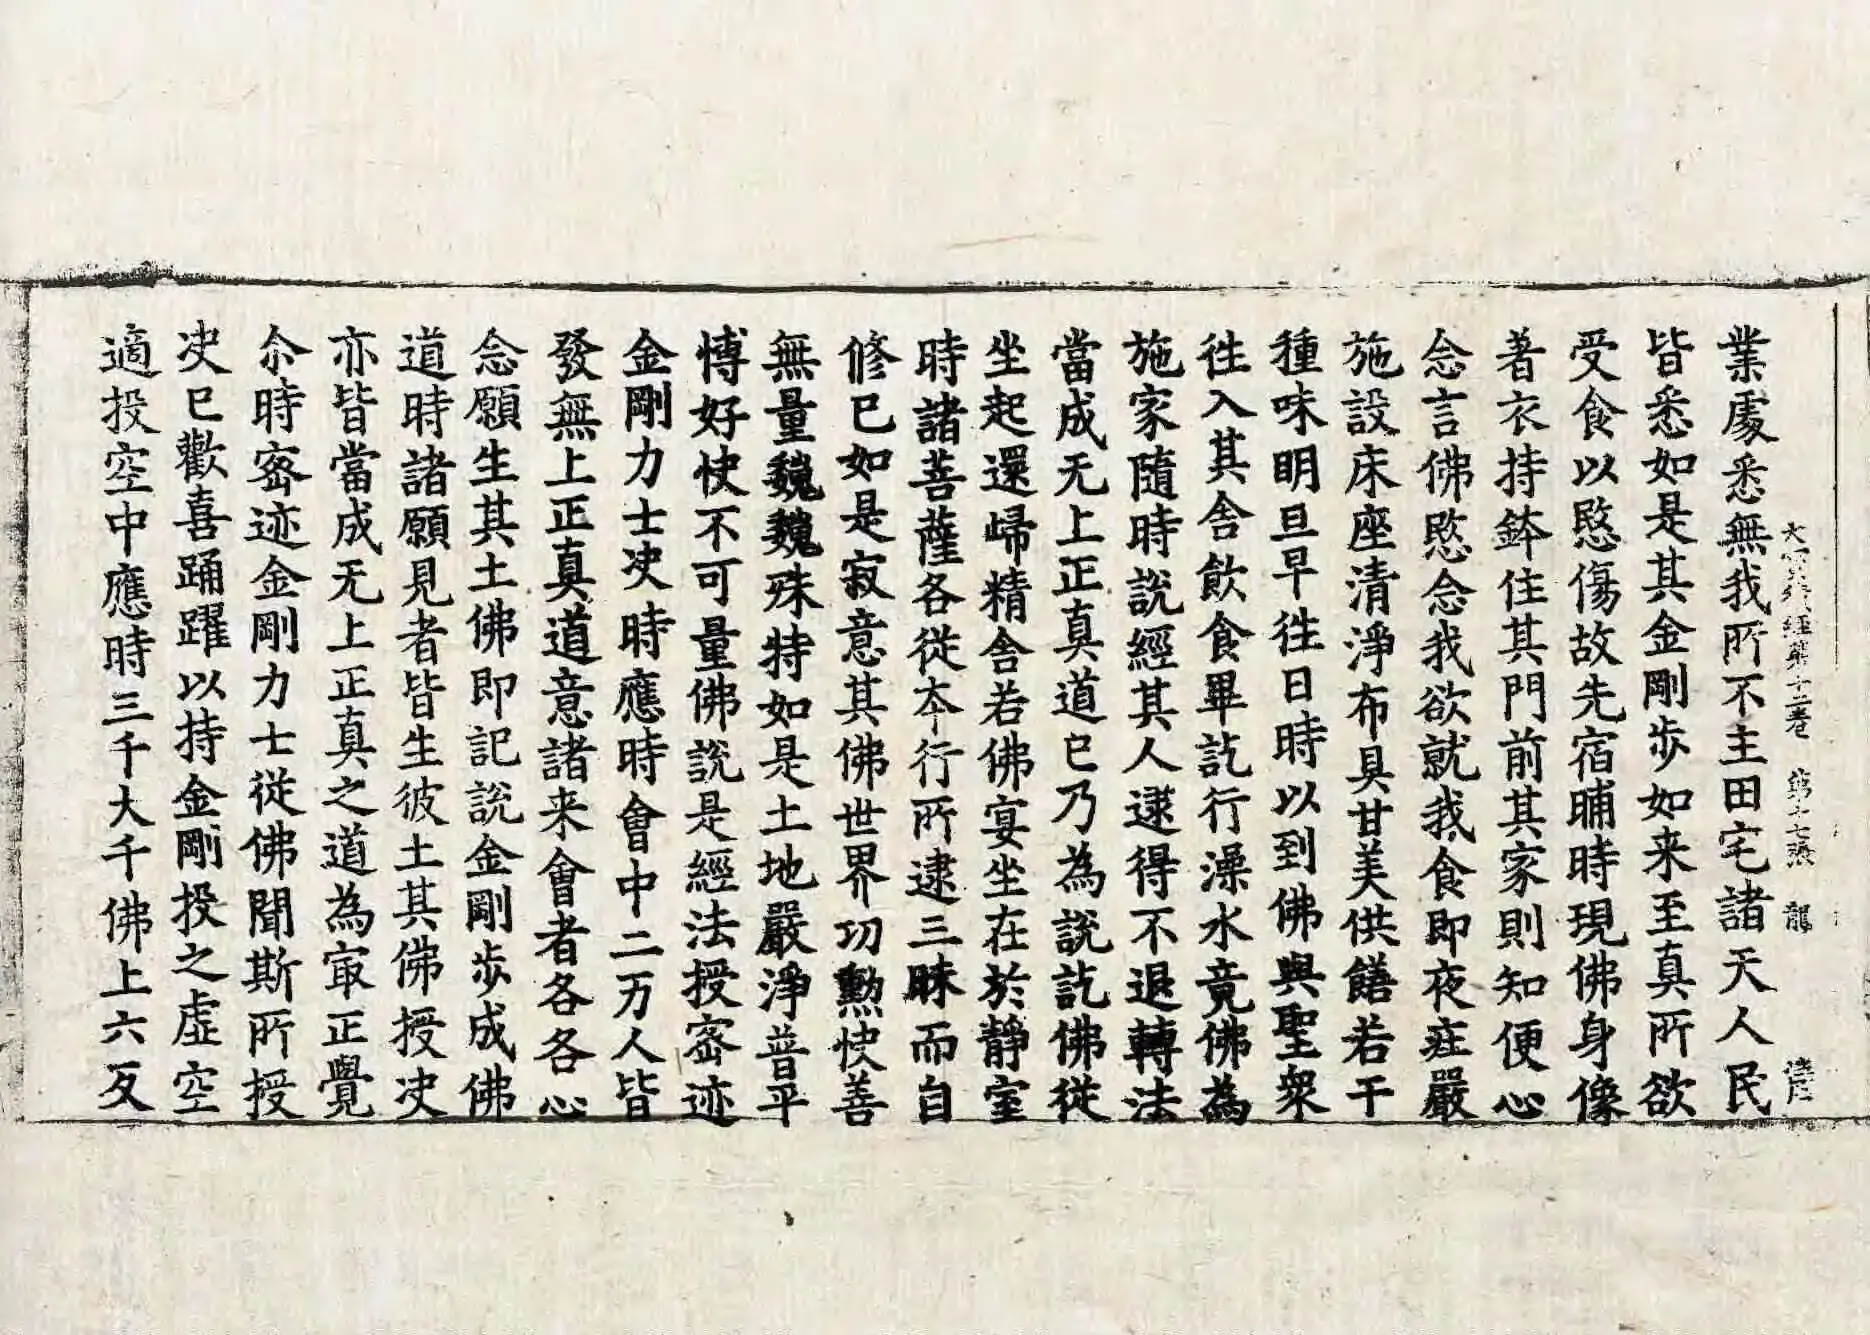 業處悉無我所不主田宅諸天人民
皆悉如是其金剛步如来至真所欲
受食以愍傷故先宿晡時現佛身像
著衣持鉢住其門前其家則知便心
念言佛愍念我欲就我食即夜庄嚴
施設床座清淨布具甘美供饍若干
種味明旦早徃日時以到佛與聖衆
徃入其舍飲食畢訖行澡水竟佛為
施家隨時說經其人逮得不退轉法
當成无上正真道已乃為說訖佛從
坐起還歸精舍若佛宴坐在於靜室
時諸菩薩各從夲行所逮三昧而自
修已如是寂意其佛世界功勲快善
無量魏魏殊特如是土地嚴淨普平
博好快不可量佛說是經法授宻迹
金剛力士决時應時會中二万人皆
發無上正真道意諸来會者各各心
念願生其土佛即記說金剛步成佛
道時諸願見者皆生彼土其佛授决
亦皆當成无上正真之道為㝡正覺
尒時宻迹金剛力士從佛聞斯所授
决已歡喜踊躍以持金剛投之虛空
適投空中應時三千大千佛上六反